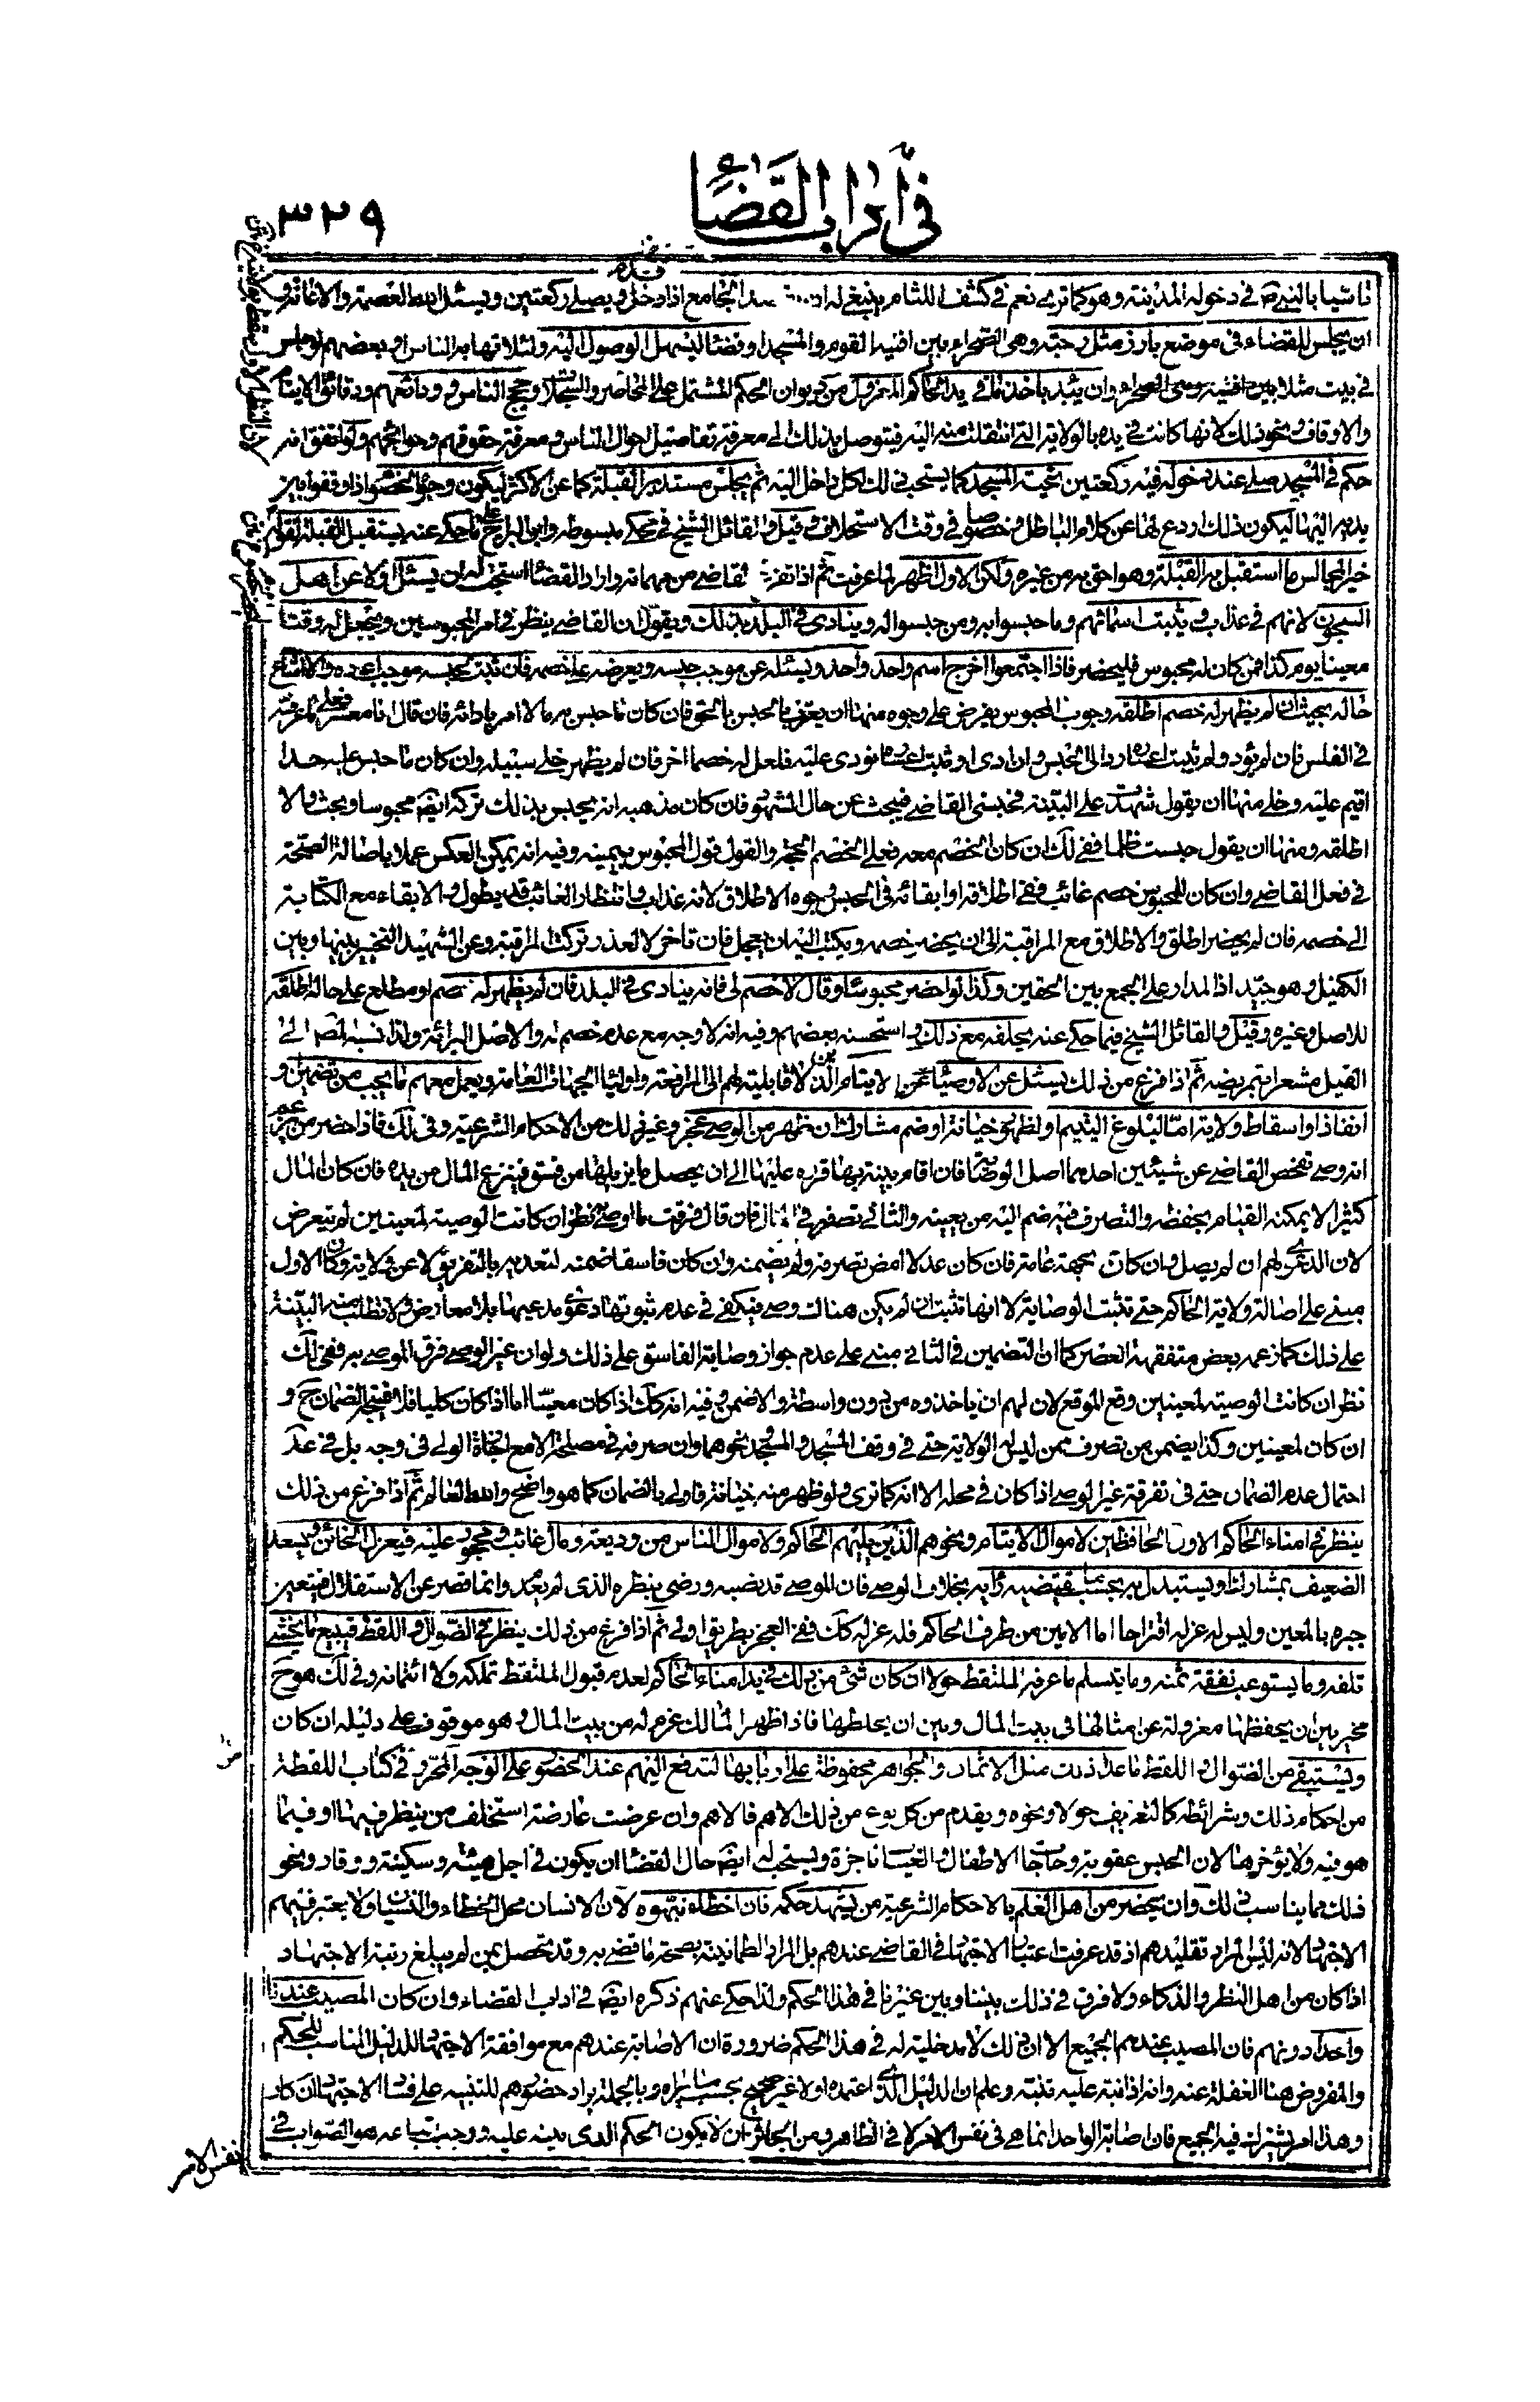 في آداب القضاء
٣٢٩
تاسيا بالنبي ص في دخوله المدينة وهو كما ترى نعم في كشف اللثام ينبغي له الجامع اذا دخل ويصلي ركعتين ويسئل الله العصمة والاعانة و
ان يجلس للقضاء في موضع بارز مثل رحبة وهي الصحراء بين افنية القوم والمسجد او فضاء ليسهل الوصول اليه ولئلا تهابه الناس او بعضهم لو جلس
في بيت مثلا وان يبدء باخذ ما في يد الحاكم المعزول من ديوان الحكم المشتمل على المحاضر والسجلات وحجج الناس وودائعهم ووقائع الايتام
والاوقاف ونحو ذلك لانها كانت في يده بالولاية التي انتقلت منه اليه فيتوصل بذلك الى معرفة تفاصيل احوال الناس ومعرفة حقوقهم وحوائجهم ولو اتفق انه
حكم في المسجد صلى عند دخوله فيه ركعتين تحية المسجد كما يستحب ذلك لكل داخل اليه ثم يجلس مستدبر القبلة كما عن الاكثر ليكون وجوه الخصوم اذا وقفوا بين
يديه اليها ليكون ذلك اردع لها عن كلام الباطل وخصوصا في وقت الاستحلاف وقيل والقائل الشيخ في محكي مبسوطه وابن البراج على ما حكي عنه يستقبل القبلة لقوله
خير المجالس ما استقبل به القبلة وهو احق به من غيره ولكن الاول اظهر لما عرفت ثم اذا القاضي من مهماته واراد القضاء استحب له ان يسئل اولا عن اهل
السجون لانهم في عذاب ويثبت اسمائهم وما حبسوا به ومن حبسوا له وينادى في البلد بذلك ويقول ان القاضي ينظر في امر المحبوسين ويجعل له وقتا
معينا يوم كذا فمن كان له محبوس فليحضر فاذا اجتمعوا اخرج اسم واحد واحد ويسئله عن موجب حبسه ويعرضه على خصمه فان ثبت لحبسه موجب اعاده والا اشاع
حاله بحيث ان لم يظهر له خصم اطلقه وجواب المحبوس يفرض على وجوه منها ان يعترف بالحبس بالحق فان كان ما حبس به مالا امر بادائه فان قال انا معسر فعلى ما عرفته
في الفلس فان لم يؤد ولم يثبت اعساره رد الى الحبس وان ادى او ثبت اعساره نودى عليه فلعل له خصما اخر فان لم يظهر خلي سبيله وان كان ما حبس عليه حدا
اقيم عليه وخلي ومنها ان يقول شهدت على البينة فحبسني القاضي فيبحث عن حال الشهود فان كان مذهبه انه يحبس بذلك تركه ايضا محبوسا وبحث والا
اطلقه ومنها ان يقول حبست ظلما ففي ذلك ان كان الخصم معه فعلى الخصم الحجة والقول قول المحبوس بيمينه وفيه انه يمكن العكس عملا باصالة الصحة
في فعل القاضي وان كان للمحبوس خصم غائب ففي اطلاقه او ابقائه في الحبس وجوه الاطلاق لانه عذاب وانتظار الغائب قد يطول والابقاء مع الكتابة
الى خصمه فان لم يحضر اطلق والاطلاق مع المراقبة الى ان يحضر خصمه ويكتب اليه ان يعجل فان تاخر لا لعذر تركت المراقبة وعن الشهيد التخيير بينها وبين
الكفيل وهو جيد اذ المدار على الجمع بين الحقين وكذا لو احضر محبوسا وقال لا خصم لي فانه ينادى في البلد فان لم يظهر له خصم او مطلع على حاله اطلقه
للاصل وغيره وقيل والقائل الشيخ فيما حكي عنه يحلفه مع ذلك واستحسنه بعضهم وفيه انه لا وجه مع عدم خصم له والاصل البرائة ولذا نسبه المصنف الى
القيل مشعرا بتمريضه ثم اذا فرغ من ذلك يسئل عن الاوصياء عن الايتام الذين لا قابلية لهم الى المرافعة واولياء الجهات العامة ويعمل معهم ما يجب من تضمين و
انفاذ او اسقاط ولاية اما لبلوغ اليتيم او لظهور خيانة او ضم مشارك ان ظهر من الوصي عجز وغير ذلك من الاحكام الشرعية وفي ذلك فاذا حضر من زعم
انه وصي تفحص القاضي عن شيئين احدهما اصل الوصاية فان اقام بينة بها قرره عليها الى ان يحصل ما يزيلها من فسق فينزع المال من يده فان كان المال
كثيرا لا يمكنه القيام بحفظه والتصرف فيه ضم اليه من يعينه والثاني تصفه في المال فان قال فرقت ما اوصى نظر ان كانت الوصية لمعينين لم يتعرض
لان الدعوى لهم ان لم يصل وان كانت بجهة عامة فان كان عدلا امض تصرفه ولم يضمنه وان كان فاسقا ضمنه لتعديه بالتفريق لا عن ولاية وكان الاول
مبني على اصالة ولاية الحاكم حتى تثبت الوصاية لا انها تثبت ان لم يكن هناك وصي فيكفي في عدم ثبوتها دعوى مدعيها بلا معارض ولا تطلب منه البينة
على ذلك كما زعمه بعض متفقهة العصر كما ان التضمين في الثاني مبني على عدم جواز وصاية الفاسق على ذلك ولو ان غير الوصي فرق الموصى به ففي ذلك
نظر ان كانت الوصية لمعينين وقع الموقع لان لهم ان ياخذوه من دون واسطة والا ضمن وفيه انه كذلك اذا كان معينا اما اذا كان كليا فلا فيتجه الضمان ح و
ان كان لمعينين وكذا يضمن من تصرف ممن ليس له الولاية حتى في وقف المسجد والمسجد ونحوهما وان صرفه في مصلحة الا مع اجازة الولي في وجه بل في عد
احتمال عدم الضمان حتى في تفرقة غير الوصي اذا كان في محله الا انه كما ترى ولو ظهر منه خيانة فاولى بالضمان كما هو واضح والله العالم ثم اذا فرغ من ذلك
ينظر في امناء الحاكم الحافظين لاموال الايتام ونحوهم الذين يليهم الحاكم ولاموال الناس من وديعة ومال غائب ومحجور عليه فيعزل الخائن ويسعد
الضعيف بمشارك او يستبدل به بحسب ما يقتضيه رأيه بخلاف الوصي فان الموصي قد نصبه ورضي بنظره الذي لم يعد وانما قصر عن الاستقلال فيتعين
جبره بالمعين وليس له عزله اقتراحا اما الامين من طرف الحاكم فله عزله كك ففي العجز بطريق اولى ثم اذا فرغ من ذلك ينظر في الضوال واللقط فيبيع ما يخشى
تلفه وما يستوعب نفقته ثمنه وما يتسلم ما عرفه الملتقط حولا ان كان شئ من ذلك في يد امناء الحاكم لعدم قبول الملتقط تملكه ولا ائتمانه وفي ذلك هو ح
مخير بين ان يحفظها معزولة عن امثالها في بيت المال وبين ان يخلطها فاذا ظهر المالك غرم له من بيت المال وهو موقوف على دليله ان كان
ويستبقي من الضوال واللقط ما عدا ذلك مثل الاثمان والجواهر محفوظة على اربابها لتدفع اليهم عند الحضور على الوجه المحرر في كتاب اللقطة
من احكام ذلك وشرائطه كالتعريف حولا ونحوه ويقدم من كل نوع من ذلك الاهم فالاهم وان عرضت عارضة استخلف من ينظر فيها او فيما
هو فيه ولا يؤخرها لان الحبس عقوبة وحاجة الاطفال والغيب ناجزة ويستحب له ايضا حال القضاء ان يكون في اجمل هيئة وسكينة ووقار ونحو
ذلك مما يناسب ذلك وان يحضر من اهل العلم بالاحكام الشرعية من يشهد حكمه فان اخطاء نبهوه لان الانسان محل الخطاء والنسيان ولا يعتبر فيهم
الاجتهاد لانه ليس المراد تقليدهم اذ قد عرفت اعتبار الاجتهاد في القاضي عندهم بل المراد الطمانينة بصحة ما قضى به وقد تحصل بمن لم يبلغ رتبة الاجتهاد
اذا كان من اهل النظر والذكاء ولا فرق في ذلك بيننا وبين غيرنا في هذا الحكم ولذا حكي عنهم ذكره ايضا في اداب القضاء وان كان المصيب عندنا
واحدا دونهم فان المصيب عندهم الجميع الا ان ذلك لا مدخلية له في هذا الحكم ضرورة ان الاصابة عندهم مع موافقة الاجتهاد للدليل المناسب للحكم
والمفروض هنا الغفلة عنه وانه اذا نبه عليه تنبه وعلم ان الدليل الذي اعتمده اولا غير صحيح بحسب ما يراه وبالجملة يراد حضورهم للتنبيه على فساد الاجتهاد ان كان
وهذا امر يشترك فيه الجميع فان اصابة الواحد انما هي في نفس الامر لا في الظاهر ومن الجائز ان لا يكون الحكم الذي بينه عليه ووجب اتباعه هو الصواب في
نفس الامر